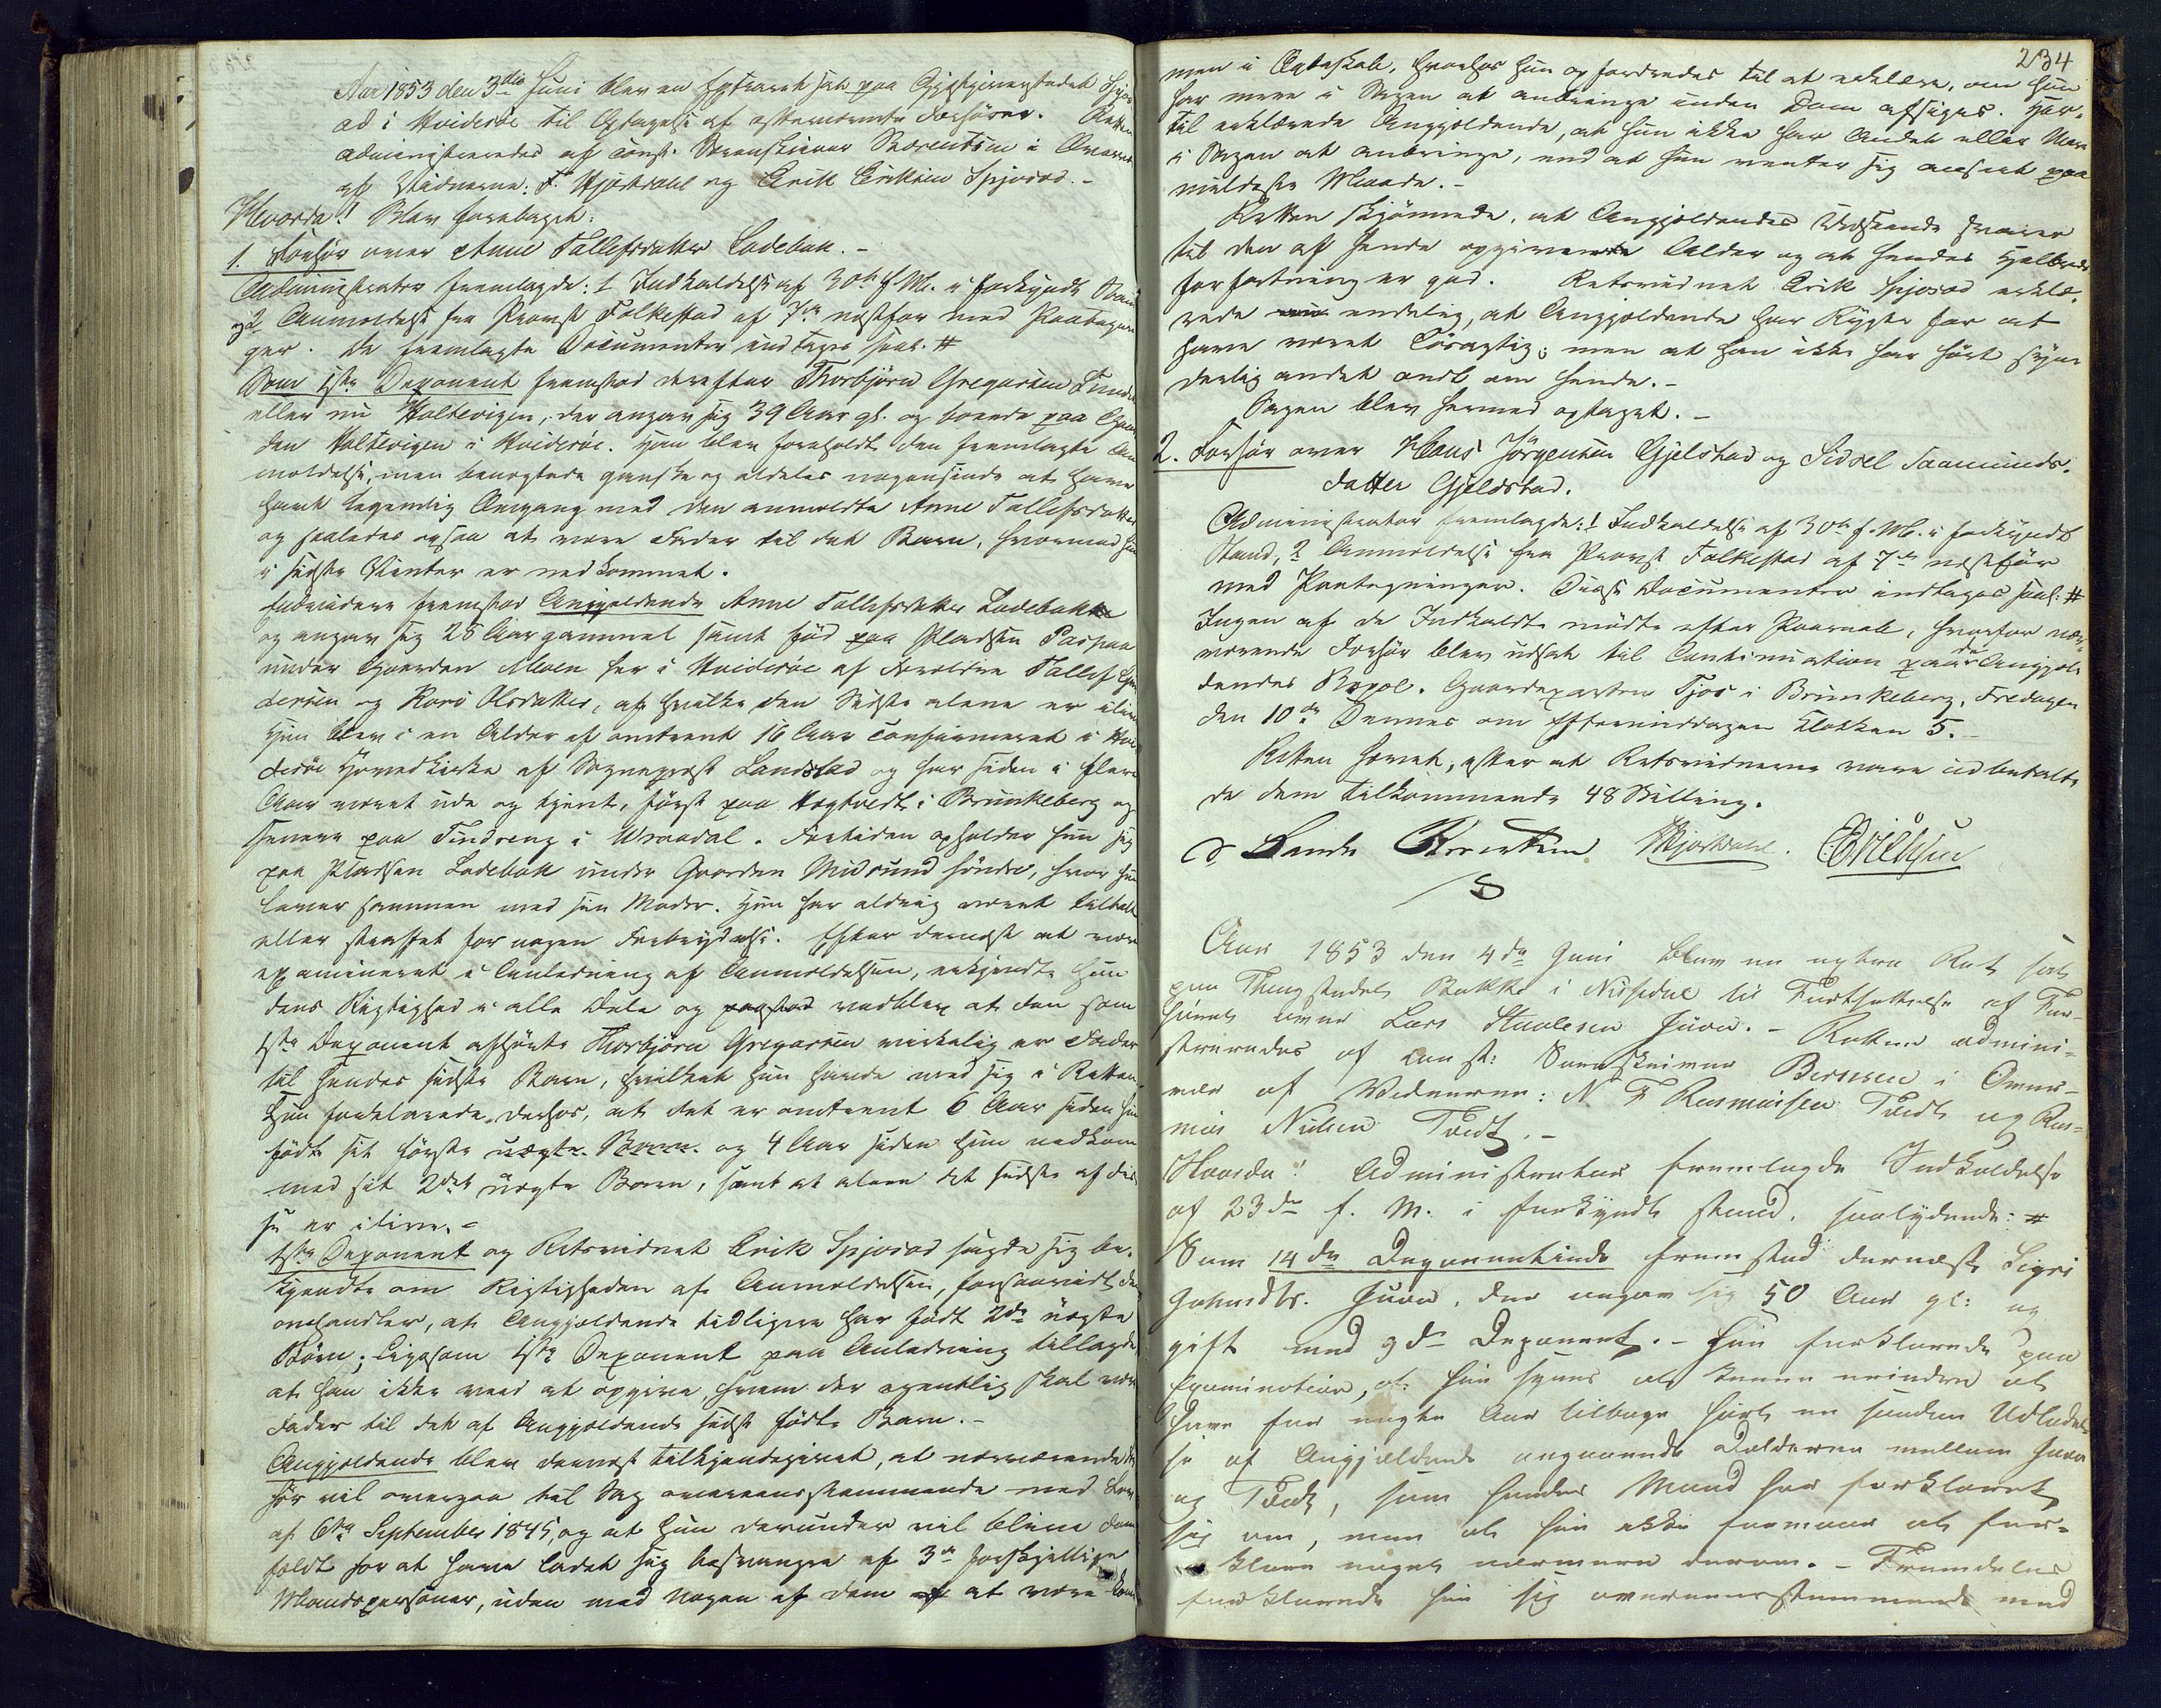 Aar 1853 den 3die Juni blev en Extraret sat paa Gjæstgiverstedet Spjos
od i Hvidesöe til Optagelse af efternævnte Forhörer. Retten
administreredes af const. Sorenskriver Borentsen i Overvær
af Vidnerne: F. Hjortdahl og Erik Eriksen Spjosod. –
Hvorda! Blev foretaget:
1. Forhör over Anne Tallefsdatter Ladebak. –
Administrator fremlagde: 1 Indkaldelse af 30te f. M. i forkyndt Stand
og 2 Anmeldelse fra Provst Folkestad af 7de næstfør med Paategnin
ger. De fremlagte Documenter indtages saal. #
Som 1ste Deponent fremstod derefter Thorbjörn Gregarsen Sunde
eller nu Holtevigen, der angav sig 39 Aar gl. og boende paa Gaar
den Holtevigen i Hvidesöe. Han blev foreholdt den fremlagte An
meldelse, men benegtede ganske og aldeles nogensinde at have
havt legemlig Omgang med den anmeldte Anne Tallefsdatter
og saaledes ogsaa at være Fader til det Barn, hvormed hun
i sidste Vinter er nedkommet.
Endvidere fremstod Angjeldende Anne Tallefsdatter Ladebakke
og angav sig 25 Aar gammel samt föd paa Pladsen Paspaa
under Gaarden Moen her i Hvidesöe af Forældre Tallef
dersen og Kari Olsdatter, af hvilke den Sidste alene er ilive
Hun blev i en Alder af omtrent 16 Aar confirmeret i Hvi
desöe Hovedkirke af Sognepræst Landstad og har siden i flere
Aar været ude og tjent, först paa Hogtvedt i Brunkeberg og
senere paa Tindreng i Wraadal. Fortiden opholder hun sig
paa Pladsen Ladebak under Gaarden Midsund söndre, hvor hun
lever sammen med sin Moder. Hun har aldrig været tiltalt
eller straffet for nogen Forbrydelse. Efter dernæst at være
examineret i Anledning af Anmeldelsen, erkjendte hun
dens Rigtighed i alle Dele og paastod vedblev at den som
1ste Deponent afhörte Thorbjörn Gregarsen virkelig er Fader
til hendes sidste Barn, hvilket hun havde med sig i Retten.
Hun forklarede derhos, at det er omtrent 6 Aar siden hun
födte sit förste uægte Barn og 4 Aar siden hun nedkom
med sit 2det uægte Barn, samt at alene det sidste af dis
se er ilive. –
1ste Deponent og Retsvidnet Erik Spjosod sagde sig be-
kjendte om Rigtigheden af Anmeldelsen, forsaavidt den
omhandler, at Angjeldende tidligere har födt 2de uægte
Börn; Ligesom 1ste Deponent paa Anledning tillagde
at han ikke veed at opgive, hvem der egentlig skal være
Fader til det af Angjeldende sidst födte Barn. –
Angjeldende blev dernæst tilkjendegivet, at nærværende For
hör vil overgaa til Sag overensstemmende med Lov
af 6te September 1845, og at hun derunder vil blive dom
fældt for at have ladet sig besvangre af 3de forskjellige
Mandspersoner, uden med Nogen af dem at være kom
234
men i Ægteskab, hvorhos hun opfordredes til at erklære, om hun
har mere i Sagen at anbringe inden Dom afsiges. Her-
til erklærede Angjeldende, at hun ikke har Andet eller Mere
i Sagen at anbringe, end at hun venter sig anseet paa
mildeste Maade. –
Retten skjönnede, at Angjeldendes Udseende svarer
til den af hende opgivne Alder og at hendes Helbreds
forfatning er god. Retsvidnet Erik Spjosod erklæ-
rede endelig, at Angjeldende har Rygte for at
have været Lösagtig; men at han ikke har hört syn
derlig andet ondt om hende. –
Sagen blev hermed optaget. –
2. Forhör over Hans Jörgensen Gjelstad og Sidsel Saamunds-
datter Gjeldstad.
Administrator fremlagde: 1 Indkaldelse af 30te f. M. i forkyndt
Stand, 2 Anmeldelse fra Provst Folkestad af 7de næstför
med Paategninger. Disse Documenter indtages saal. #
Ingen af de Indkaldte mödte efter Paaraab, hvorfor nær-
værende Forhör blev udsat til Continuation paa de Angjel-
dendes Bopæl. Gaardeparten Tjos i Brunkeberg, Fredagen
den 10de Dennes om Eftermiddagen Klokken 5. –
Retten hævet, efter at Retsvidnerne vare udbetalte
de dem tilkommende 48 Skilling.
Hjortdahl. Eriksen
Aar 1853 den 4de Juni blev en extra Ret sat
paa Thingstedet Bakke i Nissedal til Fortsættelse af For-
höret over Lars Staalesen Juve. – Retten admini-
streredes af const: Sorenskriver Berntsen i Overvæ-
relse af Vidnerne: N F Rasmusen Tvedt og Ras-
mus Nielsen Tvedt. –
Hvorda! Administrator fremlagde Indkaldelse
af 23de f. M. i forkyndt Stand, saalydende: #
Som 14de Deponentinde fremstod dernæst Sigri
der angav sig 50 Aar gl: og
gift med 9de Deponent. – Hun forklarede paa
Examination, at hun synes at kunne erindre at
have for nogle Aar tilbage hört en saadan Udladel
se af Angjeldende angaaende mellem Juve
og Tvedt, som hendes Mand har forklaret
sig om, men at hun ikke formaar at for-
klare noget nærmere derom. – Fremdeles
forklarede hun sig overensstemmende med